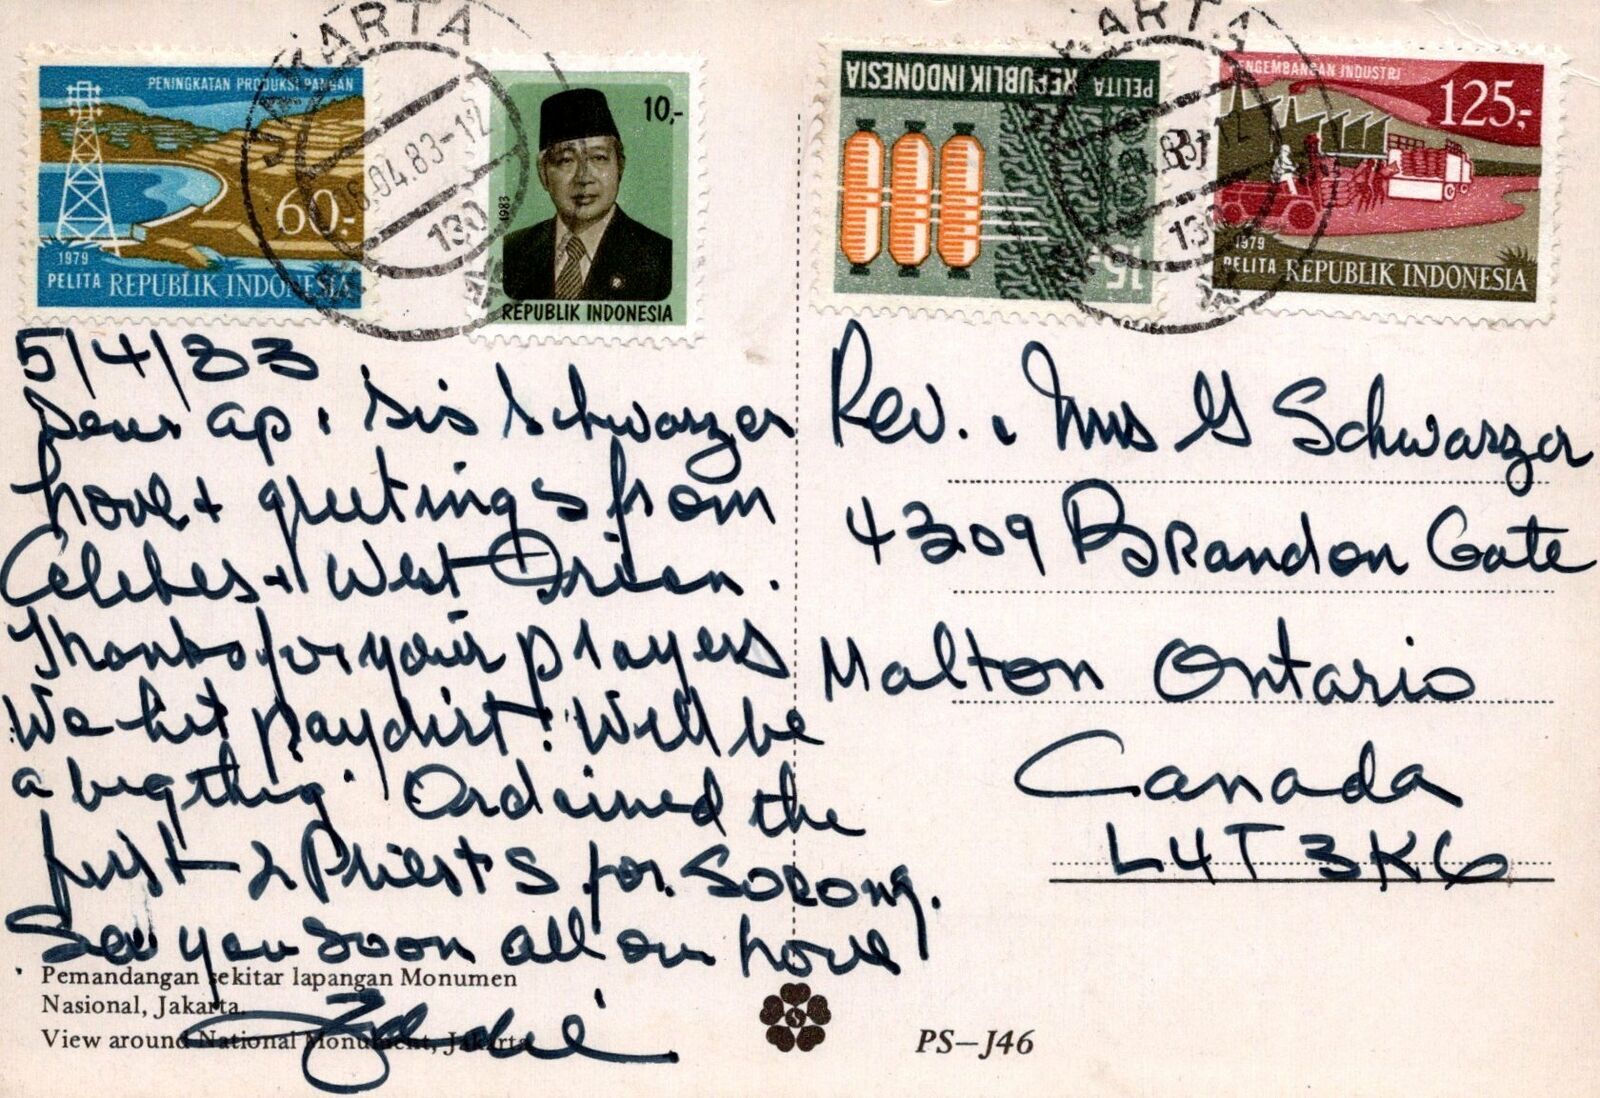 JAKARTA
16.04.83-12
130
PENINGKATAN PRODUKSI PANGAN
60,-
1979
PELITA REPUBLIK INDONESIA
10,-
1983
REPUBLIK INDONESIA
JAKARTA
.04.83-12
130
PELITA REPUBLIK INDONESIA
15,-
PENGEMBANGAN INDUSTRI
125,-
1979
PELITA REPUBLIK INDONESIA
5/4/83
Dear Ap & Sis Schwarzer
Love & greetings from
Celebes & West Irian.
Thanks for your prayers
We hit paydirt! Will be
a big thing. Ordained the
first 2 Priests for Sorong.
See you soon all our love
Rev. & Mrs G Schwarzer
4309 Brandon Gate
Malton Ontario
Canada
L4T 3K6
Pemandangan sekitar lapangan Monumen
Nasional, Jakarta.
View around National Monument, Jakarta
S
PS-J46